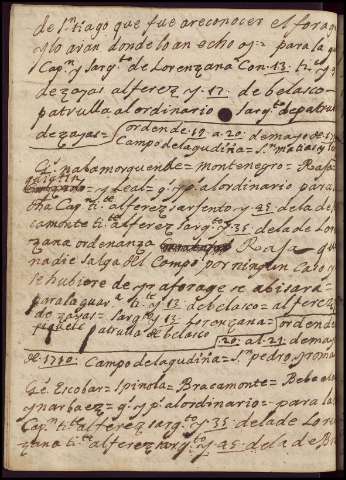 de S.ntiago que fue areconocer el forag
y lo aran donde loan echo y= para la g
Cap.n y sarg.to de Lorenzana Con. 13. ti.e y
de zayas alferez y. 17. de belasco=
patrulla al ordinario sarg.to de patru
de zayas= orden de. 19. a. 20. de mayo de. 17
Campo de la gudiña= S.n matias y to
G.s nabamorquende= montenegro= Rafa=
y Leal= q.s y p.s al ordinario para
tha Cap.n ti.te alferez sarjento y 45. de la de
camonte ti.te alferez sarg.to y. 35. de la de Lo
zana ordenanza Rafa que
nadie salga del Campo por ningun Caso y
se hubiore de yr a forage se abisara=
para la guar.a ti.te y 13. de belasco= alferez
de zayas= sarg.to y 13. Lorenzana= orden de
piquete patrulla de belasco .20. al. 21. de may
de. 1710. Campo de la gudiña= S.n pedro y oma
G.s Escobar= spinola= Bracamonte= Beba
y narbaez= q.s y p.s al ordinario= para la
Cap.n ti.te alferez sarg.to y 35 de la de Lon
zana ti.te alferez sarg.to y 45. de la de Br